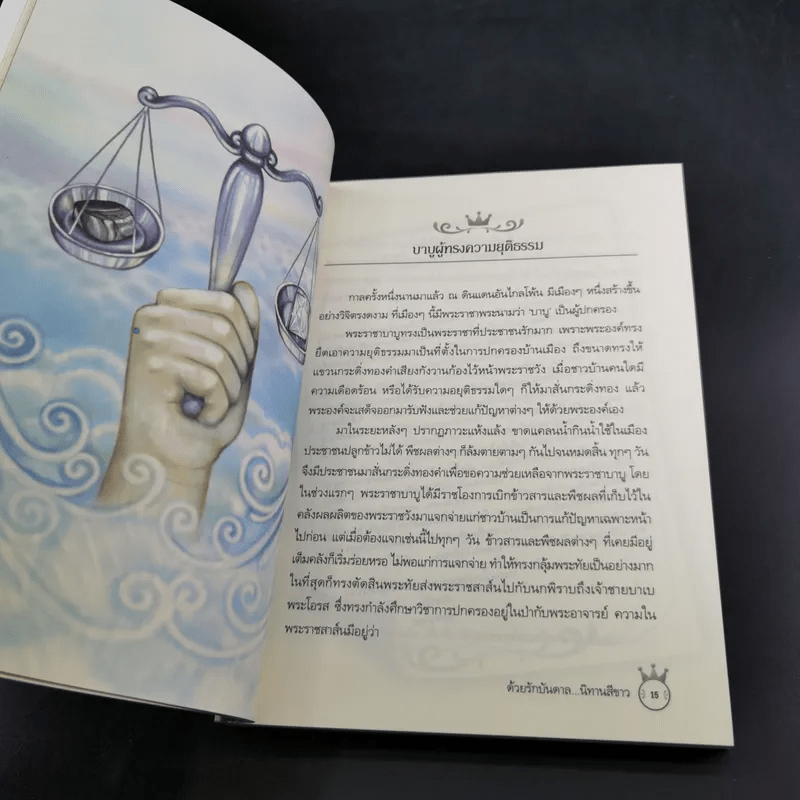 บาบูผู้ทรงความยุติธรรม
กาลครั้งหนึ่งนานมาแล้ว ณ ดินแดนอันไกลโพ้น มีเมืองๆ หนึ่งสร้างขึ้น
อย่างวิจิตรงดงาม ที่เมืองๆ นี้มีพระราชาพระนามว่า 'บาบู' เป็นผู้ปกครอง
พระราชาบาบูทรงเป็นพระราชาที่ประชาชนรักมาก เพราะพระองค์ทรง
ยึดเอาความยุติธรรมมาเป็นที่ตั้งในการปกครองบ้านเมือง ถึงขนาดทรงให้
แขวนกระดิ่งทองคำเสียงกังวานก้องไว้หน้าพระราชวัง เมื่อชาวบ้านคนใดมี
ความเดือดร้อน หรือได้รับความอยุติธรรมใดๆ ก็ให้มาสั่นกระดิ่งทอง แล้ว
พระองค์จะเสด็จออกมารับฟังและช่วยแก้ปัญหาต่างๆ ให้ด้วยพระองค์เอง
มาในระยะหลังๆ ปรากฏภาวะแห้งแล้ง ขาดแคลนน้ำกินน้ำใช้ในเมือง
ประชาชนปลูกข้าวไม่ได้ พืชผลต่างๆ ก็ล้มตายตามๆ กันไปจนหมดสิ้น ทุกๆ วัน
จึงมีประชาชนมาสั่นกระดิ่งทองคำเพื่อขอความช่วยเหลือจากพระราชาบาบู โดย
ในช่วงแรกๆ พระราชาบาบูได้มีราชโองการเบิกข้าวสารและพืชผลที่เก็บไว้ใน
คลังผลผลิตของพระราชวังมาแจกจ่ายแก่ชาวบ้านเป็นการแก้ปัญหาเฉพาะหน้า
ไปก่อน แต่เมื่อต้องแจกเช่นนี้ไปทุกๆ วัน ข้าวสารและพืชผลต่างๆ ที่เคยมีอยู่
เต็มคลังก็เริ่มร่อยหรอ ไม่พอแก่การแจกจ่าย ทำให้ทรงกลุ้มพระทัยเป็นอย่างมาก
ในที่สุดก็ทรงตัดสินพระทัยส่งพระราชสาส์นไปกับนกพิราบถึงเจ้าชายบาเบ
พระโอรส ซึ่งทรงกำลังศึกษาวิชาการปกครองอยู่ในป่ากับพระอาจารย์ ความใน
พระราชสาส์นมีอยู่ว่า
ด้วยรักบันดาล...นิทานสีขาว 15